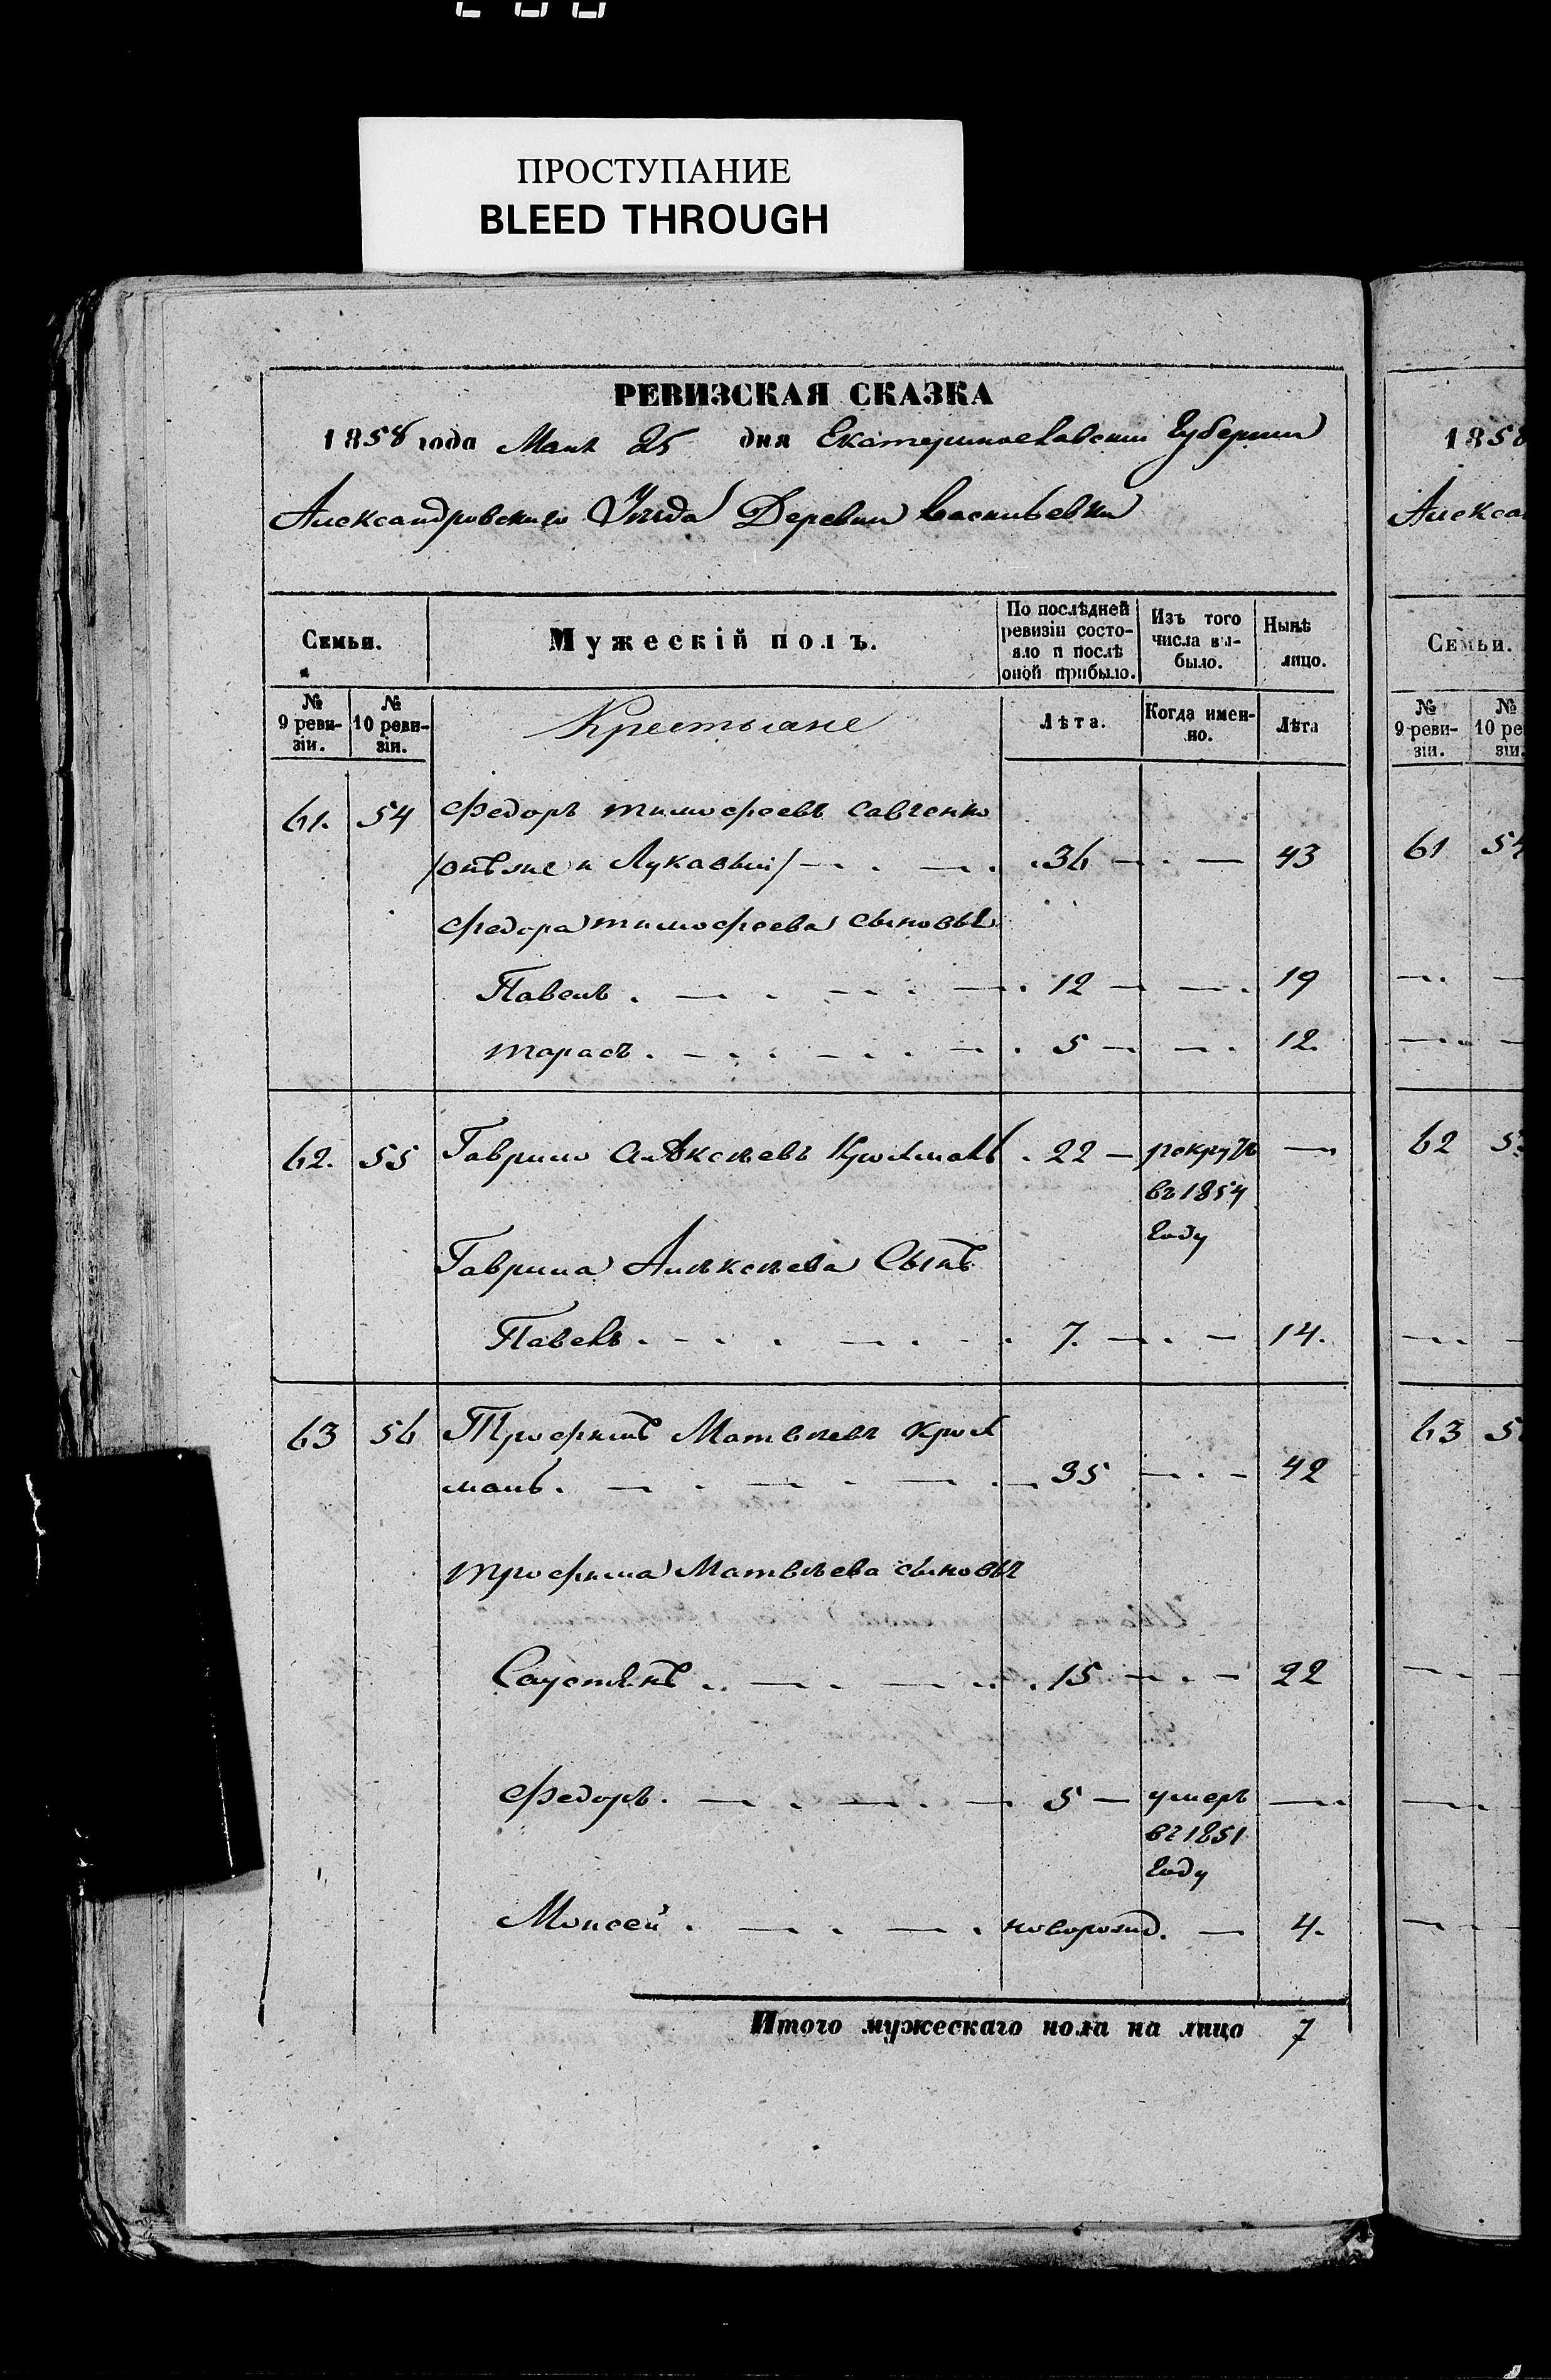 ПРОСТУПАНИЕ
BLEED THROUGH
РЕВИЗСКАЯ СКАЗКА
1858 года Мая 25 дня Екатеринославской Губернии
Александровскаго Уѣзда Деревни Васильевки
Семьи. Мужескій полъ. По послѣдней ревизіи состояло и послѣ оной прибыло. Изъ того числа выбыло. Нынѣ лицо.
№ 9 ревизіи. № 10 ревизіи. Крестьяне Лѣта. Когда именно. Лѣта
61. 54 Федоръ Тимофеевъ Савченко
/онъ же и Лукавый/ 36 43
Федора Тимофеева сыновья
Павелъ 12 19
Тарасъ 5 12.
62. 55 Гаврило Алѣксѣевъ 22 рекрутъ
въ 1854
году
Гаврила Алѣксѣева Сынъ
Павелъ 7. 14.
63 56 Трофимъ Матвѣевъ
35 42
Трофима Матвѣева сыновья
15 22
Федоръ 5 умеръ
въ 1851
году
Моисей новорожд. 4.
Итого мужескаго пола на лицо 7
1858
Алекса
Семьи.
№ 9 ревизіи. № 10 ре
зіи.
61 54
62 5
63 5